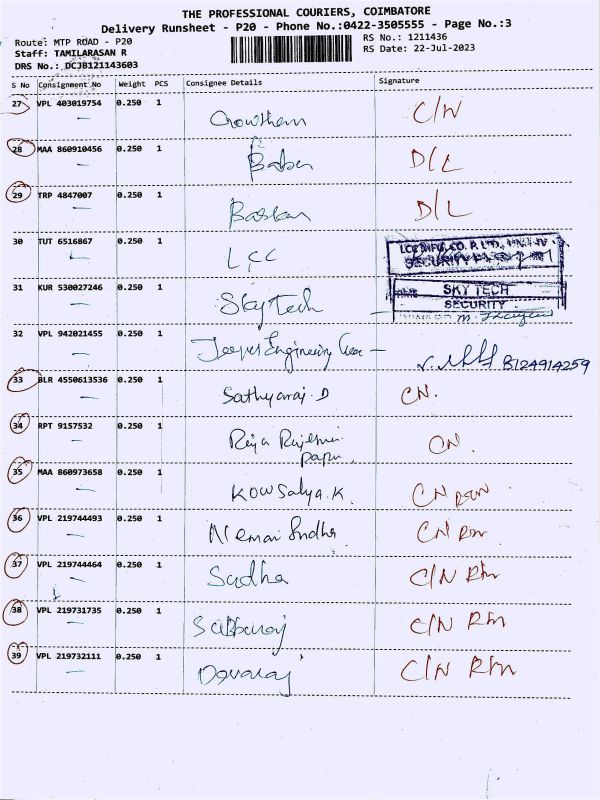 THE PROFESSIONAL COURIERS, COIMBATORE
Delivery Runsheet - P20 - Phone No.:0422-3505555 - Page No.:3
Route: MTP ROAD - P20
RS No.: 1211436
Staff: TAMILARASAN R
RS Date: 22-Jul-2023
DRS No.: DCJB121143603
S No Consignment No Weight PCS Consignee Details Signature
27 VPL 403019754 0.250 1 Gowtham C/N
28 MAA 860910456 0.250 1 D/L
29 TRP 4847007 0.250 1 Baskar D/L
30 TUT 6516867 0.250 1 LCC
31 KUR 530027246 0.250 1 Skytech
SKY TECH
SECURITY
32 VPL 942021455 0.250 1 Engineering 8124914259
33 BLR 4550613536 0.250 1 Sathyaraj D CN.
34 RPT 9157532 0.250 1 CN.
35 MAA 860973658 0.250 1 Kowsalya.K. CN
36 VPL 219744493 0.250 1 CN Rm
37 VPL 219744464 0.250 1 Sudha C/N Rm
38 VPL 219731735 0.250 1 C/N Rm
39 VPL 219732111 0.250 1 Devaraj C/N Rm